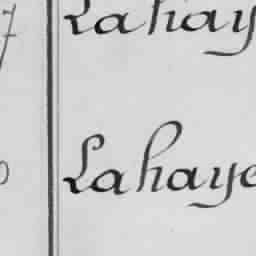 Lahay
Lahaye